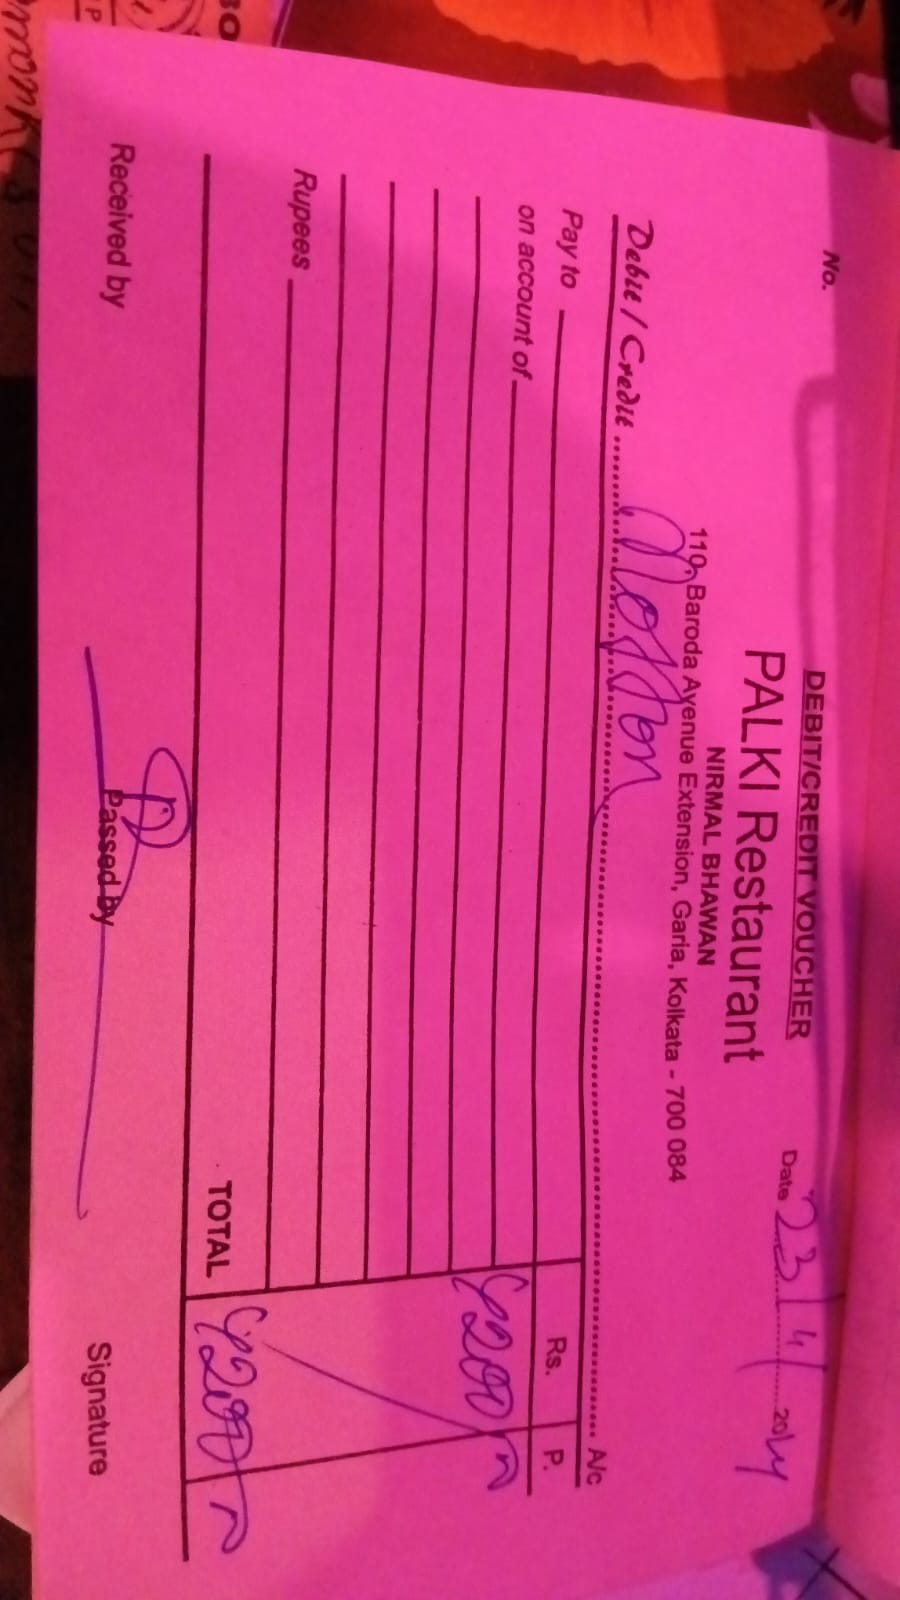 No.
DEBIT/CREDIT VOUCHER
PALKI Restaurant
NIRMAL BHAWAN
110, Baroda Avenue Extension, Garia, Kolkata - 700 084
Date 23/4/2024
Debit / Credit Motton A/c
Pay to
Rs. P.
on account of
4200
Rupees
TOTAL 4200
Received by
Passed by
Signature